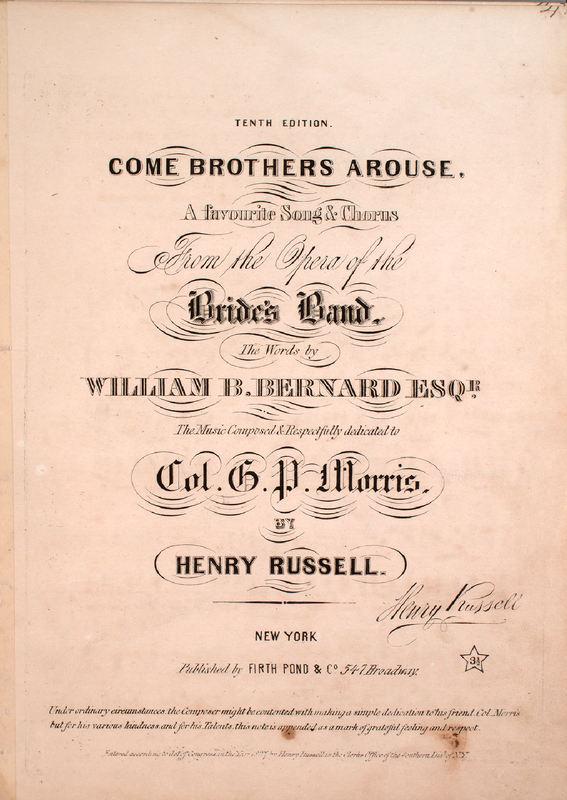 TENTH EDITION.
COME BROTHERS AROUSE,
A favourite Song & Chorus
From the Opera of the
Bride's Band.
The Words by
WILLIAM B. BERNARD ESQR.
The Music Composed & Respectfully dedicated to
Col. G. P. Morris.
BY
HENRY RUSSELL.
Henry Russell
NEW YORK
Published by FIRTH POND & Co. 547 Broadway.
Under ordinary circumstances, the Composer might be contented with making a simple dedication to his friend, Col. Morris
but for his various kindness, and for his Talents, this note is appended as a mark of grateful feeling and respect.
Entered according to Act of Congress, in the Year by Henry Russell in the Clerks Office of the Southern Dist. of N.Y.